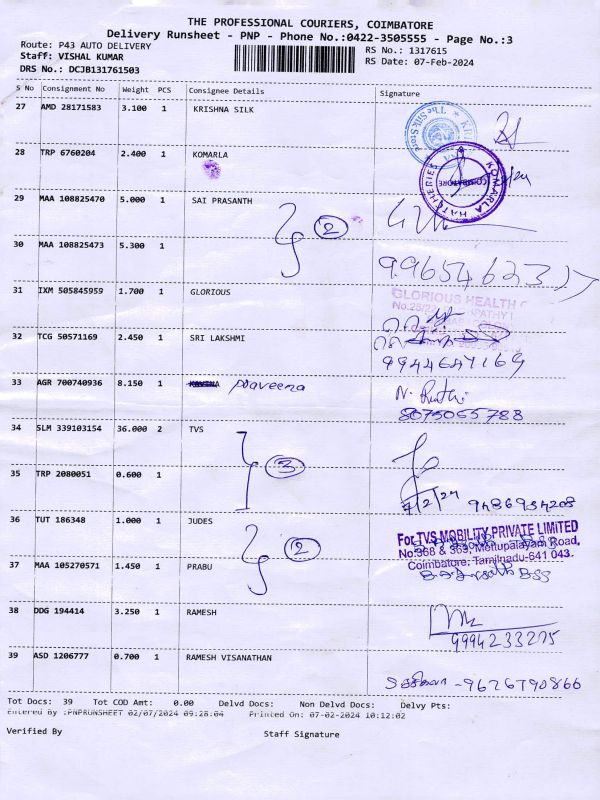 THE PROFESSIONAL COURIERS, COIMBATORE
Delivery Runsheet - PNP - Phone No.:0422-3505555 - Page No.:3
Route: P43 AUTO DELIVERY RS No.: 1317615
Staff: VISHAL KUMAR RS Date: 07-Feb-2024
DRS No.: DCJB131761503
S No Consignment No Weight PCS Consignee Details Signature
27 AMD 28171583 3.100 1 KRISHNA SILK
28 TRP 6760204 2.400 1 KOMARLA
KOMARLA HATCHERIES
COIMBATORE
29 MAA 108825470 5.000 1 SAI PRASANTH
2
30 MAA 108825473 5.300 1
31 IXM 505845959 1.700 1 GLORIOUS
GLORIOUS HEALTH
32 TCG 50571169 2.450 1 SRI LAKSHMI
33 AGR 700740936 8.150 1 Praveena
8075065788
34 SLM 339103154 36.000 2 TVS
3
35 TRP 2080051 0.600 1
7/2/24 9486934208
36 TUT 186348 1.000 1 JUDES
For TVS MOBILITY PRIVATE LIMITED
2
No.368 & 369, Mettupalayam Road,
Coimbatore, Tamilnadu-641 043.
37 MAA 105270571 1.450 1 PRABU
38 DDG 194414 3.250 1 RAMESH
9994233275
39 ASD 1206777 0.700 1 RAMESH VISANATHAN
- 9626790866
Tot Docs: 39 Tot COD Amt: 0.00 Delvd Docs: Non Delvd Docs: Delvy Pts:
Entered By :PNPRUNSHEET 02/07/2024 09:28:04 Printed On: 07-02-2024 10:12:02
Verified By Staff Signature